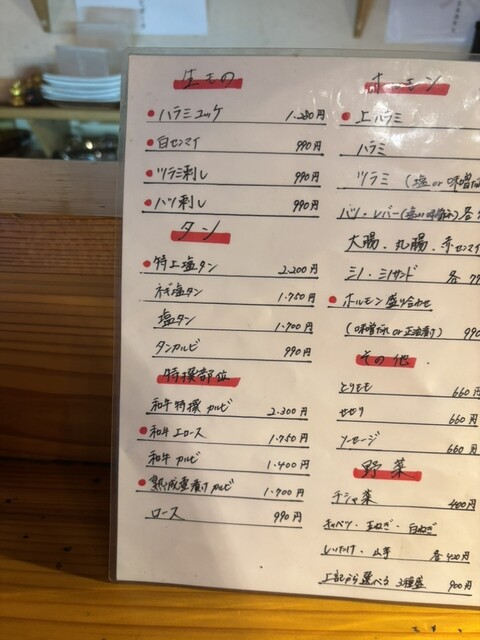 生もの
ハラミユッケ 1.280円
白センマイ 990円
ツラミ刺し 990円
ハツ刺し 990円
タン
特上塩タン 2.200円
ネギ塩タン 1.750円
塩タン 1.700円
タンカルビ 990円
特撰部位
和牛特撰カルビ 2.300円
和牛上ロース 1.750円
和牛カルビ 1.400円
熟成壺漬けカルビ 1.700円
ロース 990円
ホルモン
上ハラミ
ハラミ
ツラミ (塩 or 味噌だれ
ハツ・レバー(塩 or 味噌だれ) 各
大腸、丸腸、赤センマイ
ミノ・ミノサンド 各
ホルモン盛り合わせ
(味噌だれ or 正油漬け) 990
その他
とりモモ 660円
せせり 660円
ソーセージ 660円
野菜
チシャ菜 480円
キャベツ・玉ねぎ・白ねぎ
しいたけ・山芋 各420円
上記から選べる 3種盛 900円